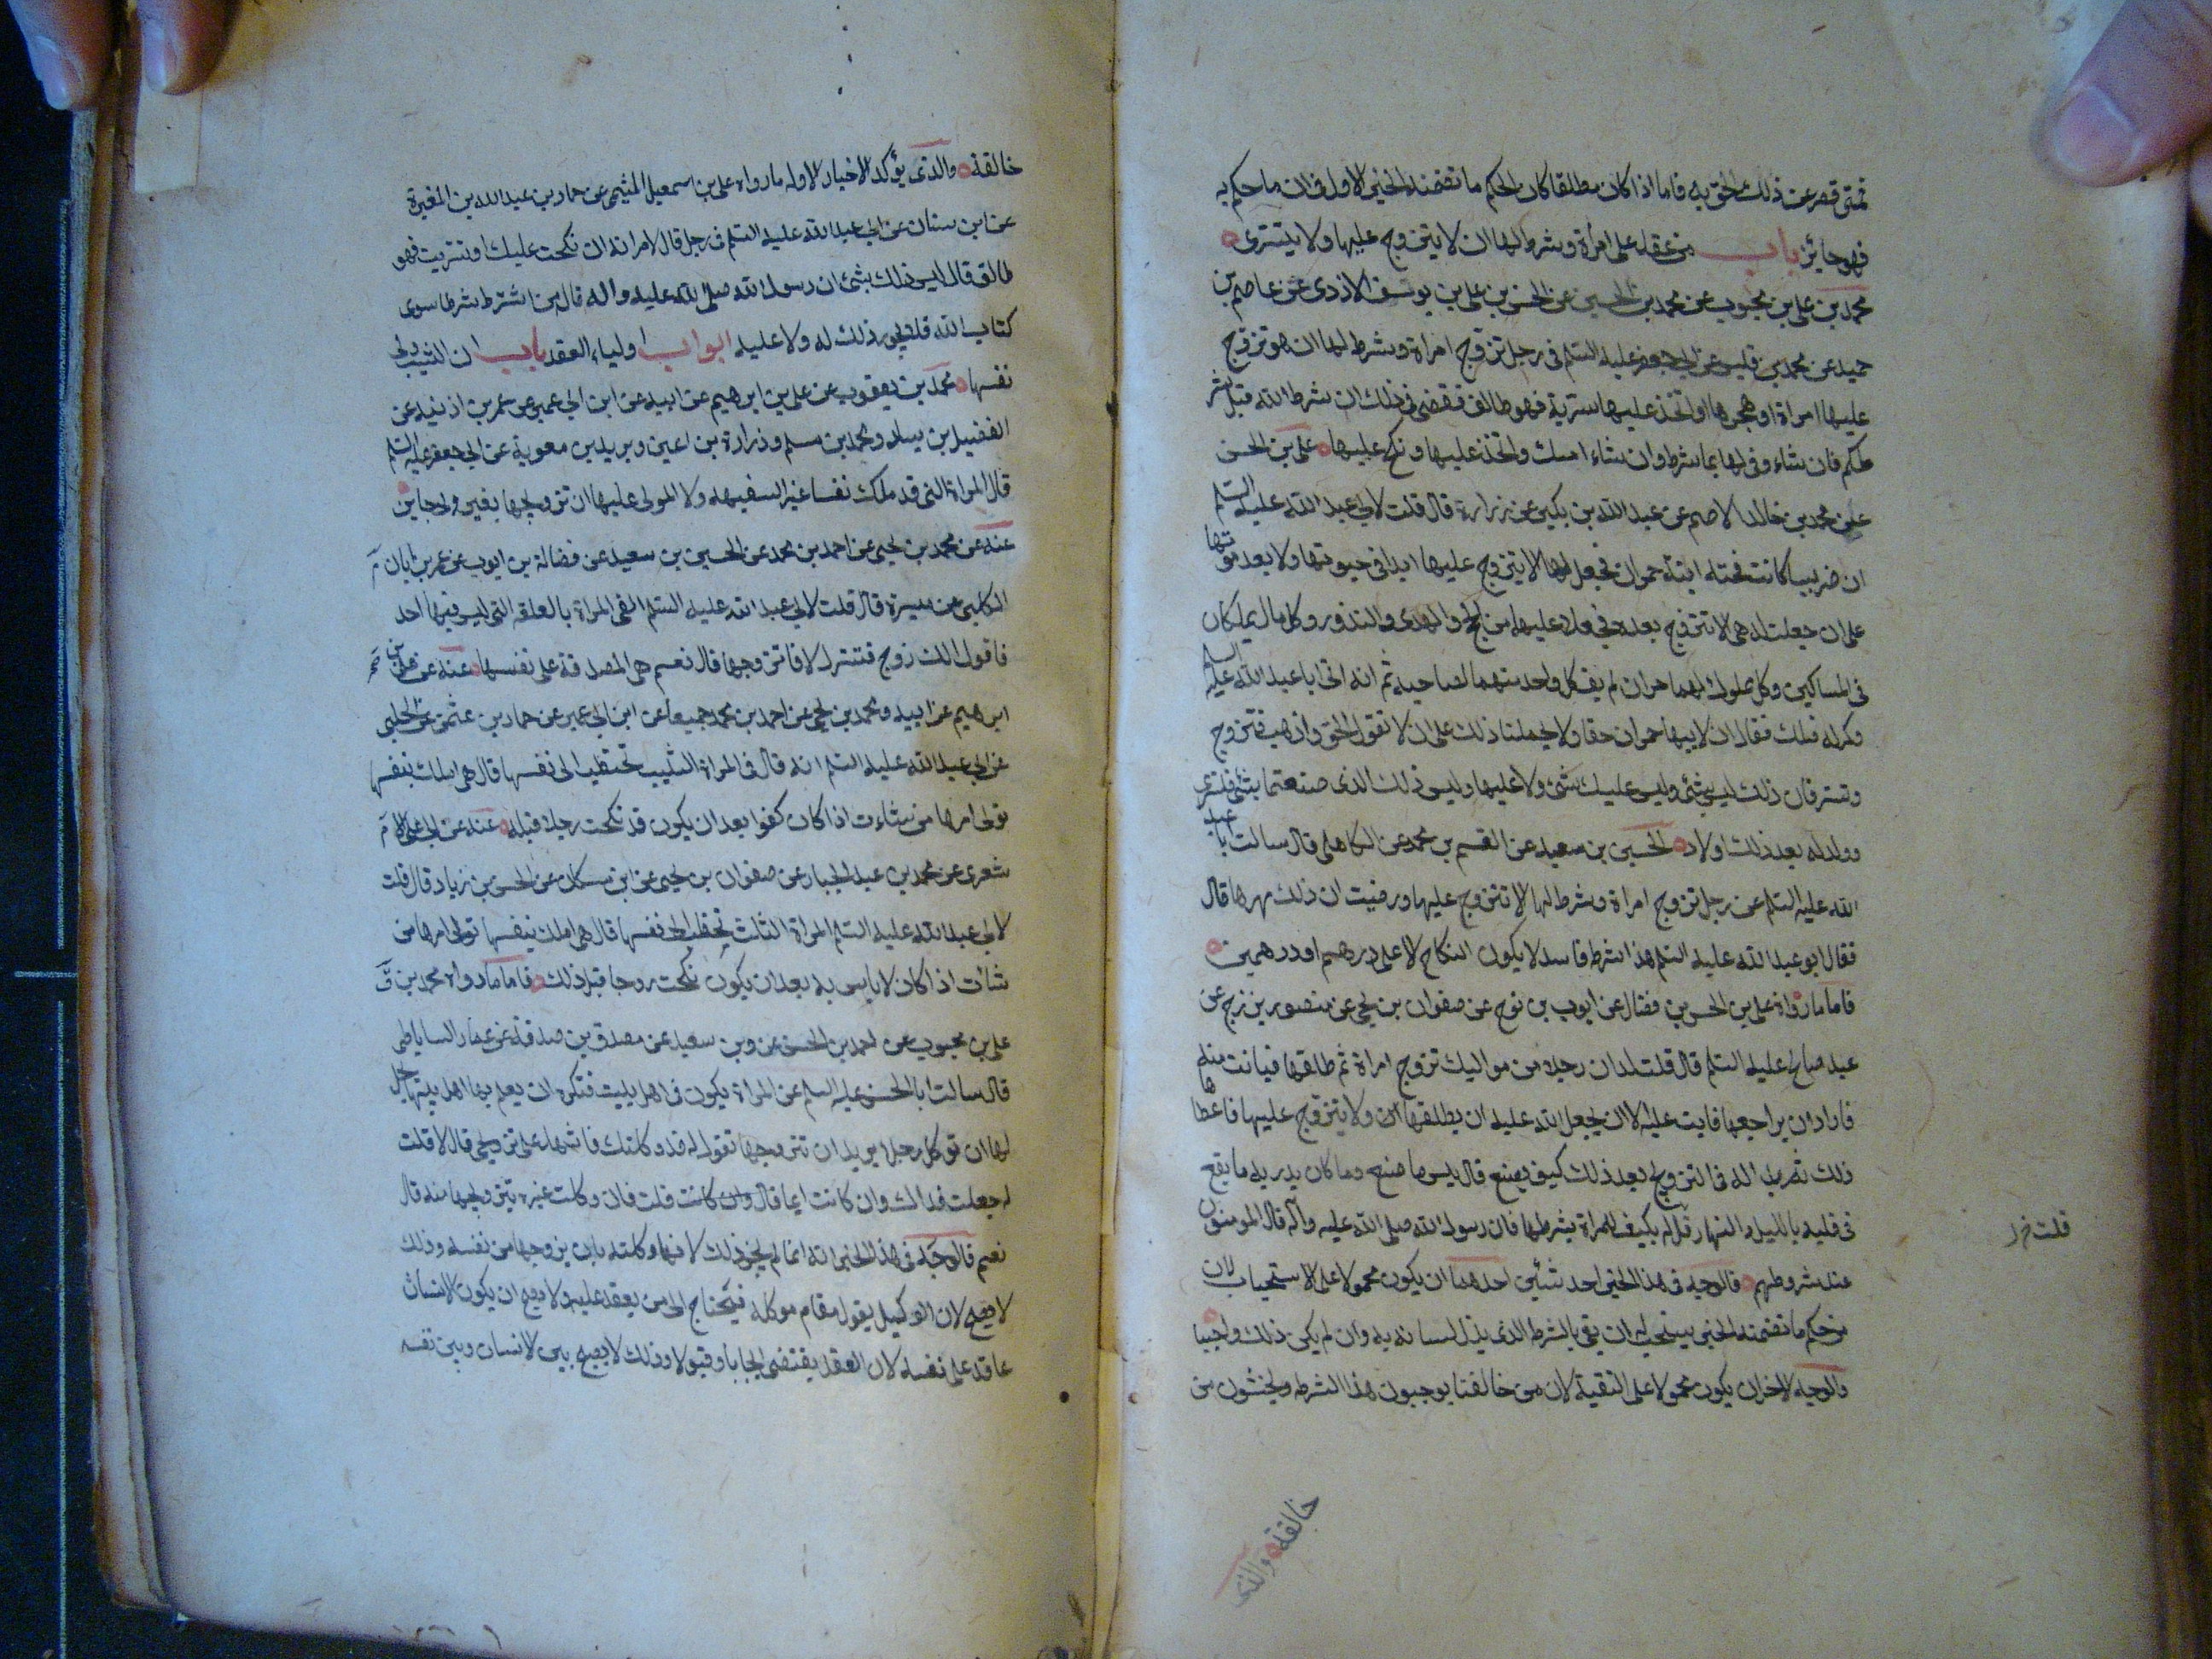 فمتى قصر عن ذلك الحق به فاما اذا كان مطلقا كان الحكم ما تضمنه الخبر الاول فى ان ما حكم به
فهو جائز باب من عقد على امراة وشرط لها ان لا يتزوج عليها ولا يتسرى
محمد بن على بن محبوب عن محمد بن الحسين عن الحسن بن على بن يوسف الازدى عن عاصم بن
حميد عن محمد بن قيس عن ابى جعفر عليه السلم فى رجل تزوج امراة وشرط لها ان هو تزوج
عليها امراة او هجرها او اتخذ عليها سرية فهو طالق فقضى فى ذلك ان شرط الله قبل شر
طكم فان شاء وفى لها بما شرط وان شاء امسك واتخذ عليها ونكح عليها على بن الحسن
عن محمد بن خالد الاصم عن عبد الله بن بكير عن زرارة قال قلت لابى عبد الله عليه السلم
ان ضريسا كانت تحته ابنة حمران فجعل لها الا يتزوج عليها ابدا فى حيوتها ولا بعد موتها
على ان جعلت له هى الا تتزوج بعده وجعلا عليهما من الحج والهدى والنذور وكل مال يملكان
فى المساكين وكل مملوك لهما حر ان لم يف كل واحد منهما لصاحبه ثم انه اتى ابا عبد الله عليه السلم
وذكر له ذلك فقال ان لابيها حمران حقا ولا يحملنا ذلك على ان لا نقول الحق اذهب فتزوج
وتسر فان ذلك ليس بشئ وليس عليك شئ ولا عليها وليس ذلك الذى صنعتما بشئ فتسرى
وولد له بعد ذلك اولاد الحسين بن سعيد عن القسم بن محمد عن الكاهلى قال سالت ابا عبد
الله عليه السلم عن رجل تزوج امراة وشرط لها الا تتزوج عليها ورضيت ان ذلك مهرها قال
فقال ابو عبد الله عليه السلم هذا شرط فاسد لا يكون النكاح الا على درهم او درهمين
فاما ما رواه على بن الحسن بن فضال عن ايوب بن نوح عن صفوان بن يحيى عن منصور بن بزرج عن
عبد صالح عليه السلم قال قلت له ان رجلا من مواليك تزوج امراة ثم طلقها فبانت منه
فاراد ان يراجعها فابت عليه الا ان يجعل لله عليه ان لا يطلقها ولا يتزوج عليها فاعطاها
ذلك ثم بدا له فى التزويج بعد ذلك كيف يصنع قال بئس ما صنع وما كان يدريه ما يقع
فى قلبه بالليل والنهار قل له فليف للمراة بشرطها فان رسول الله صلى الله عليه وآله قال المومنون
عند شروطهم فالوجه فى هذا الخبر احد شيئين احدهما ان يكون محمولا على الاستحباب لان
من حكم ما تضمنه الخبر يستحب له ان يفى بالشرط الذى بذل لسانه به وان لم يكن ذلك واجبا
والوجه الاخر ان يكون محمولا على التقية لان من خالفنا يوجبون هذا الشرط ويحنثون من
خالقة والذى
خالقة والذى يؤكد الاخبار الاوله ما رواه على بن اسمعيل الميثمى عن حماد بن عبد الله بن المغيرة
عن ابن سنان عن ابى عبد الله عليه السلم فى رجل قال لامراته ان نكحت عليك او تسريت فهو
طالق قال ليس ذلك بشئ ان رسول الله صلى الله عليه واله قال من اشترط شرطا سوى
كتاب الله فلا يجوز ذلك له ولا عليه ابواب اولياء العقد باب ان الثيب ولى
نفسها محمد بن يعقوب عن على بن ابرهيم عن ابيه عن ابن ابى عمير عن عمر بن اذينه عن
الفضيل بن يسار ومحمد بن مسلم وزرارة بن اعين وبريد بن معوية عن ابى جعفر عليه السلم
قال المراة التى قد ملكت نفسا غير السفيهه ولا المولى عليها ان تزويجها بغير ولى جايز
عنه عن محمد بن يحيى عن احمد بن محمد عن الحسين بن سعيد عن فضالة بن ايوب عن عمر بن ابان
الكلبى عن ميسرة قال قلت لابى عبد الله عليه السلم القى المراة بالفلاة التى ليس فيها احد
فاقول الك زوج فتقول لا فاتزوجها قال نعم هى المصدقة على نفسها عنه عن على بن
ابرهيم عن ابيه ومحمد بن يحيى عن احمد بن محمد جميعا عن ابن ابى عمير عن حماد بن عثمن عن الحلبى
عن ابى عبد الله عليه السلم انه قال فى المراة الثيب تخطب الى نفسها قال هى املك بنفسها
تولى امرها من شاءت اذا كان كفوا بعد ان يكون قد نكحت رجلا قبله عنه عن ابى على الا
شعرى عن محمد بن عبد الجبار عن صفوان بن يحيى عن ابن مسكان عن الحسن بن زياد قال قلت
لابى عبد الله عليه السلم المراة الثيب تخطب الى نفسها قال هى املك بنفسها تولى امرها من
شائت اذا كان لا باس به بعد ان يكون نكحت زوجا قبل ذلك فاما ما رواه محمد بن
على بن محبوب عن احمد بن الحسن عن عمرو بن سعيد عن مصدق بن صدقة عن عمار الساباطى
قال سالت ابا الحسن عليه السلم عن المراة يكون فى اهل بيت فتكره ان يعلم بها اهل بيتها يحل
لها ان توكل رجلا يريد ان تتزوجها تقول له قد وكلتك فاشهد على تزويجى قال لا قلت
له جعلت فداك وان كانت ايما قال وان كانت قلت فان وكلت غيره بتزويجها منه قال
نعم فالوجه فى هذا الخبر انه انما لم يجز ذلك لانها وكلته بان يزوجها من نفسه وذلك
لا يصح لان الوكيل يقول مقام موكله فيحتاج الى من يعقد عليه ولا يصح ان يكون الانسان
عاقد على نفسه لان العقد يقتضى ايجابا وقبولا وذلك لا يصح بين الانسان وبين نفسه